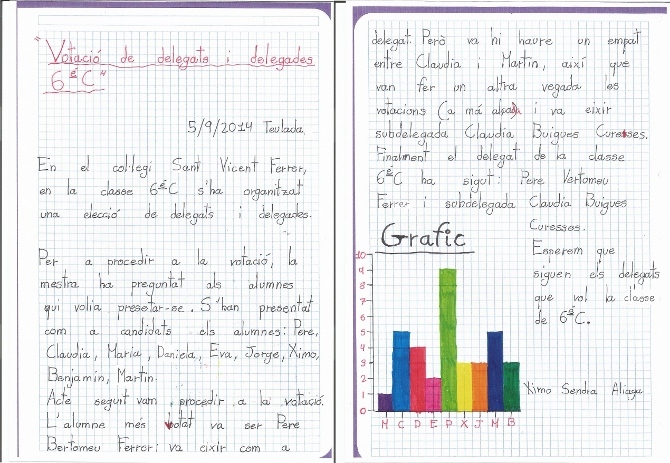 "Votació de delegats i delegades
6é C"
5/9/2014 Teulada
En el col·legi Sant Vicent Ferrer,
en la classe 6é C s'ha organitzat
una elecció de delegats i delegades.
Per a procedir a la votació, la
mestra ha preguntat als alumnes
qui volia presetar-se. S'han presentat
com a candidats els alumnes: Pere,
Claudia, Maria, Daniela, Eva, Jorge, Ximo,
Benjamin, Martin.
Acte seguit vam procedir a la votació.
L'alumne més votat va ser Pere
Bertomeu Ferrer i va eixir com a
delegat. Però va hi haure un empat
entre Claudia i Martin, així que
van fer un altra vegada les
votacions (a má alçada) i va eixir
subdelegada Claudia Buigues Curesses.
Finalment el delegat de la classe
6é C ha sigut: Pere Vertomeu
Ferrer i subdelegada Claudia Buigues
Curessos.
Esperem que
siguen els delegats
que vol la classe
de 6é C.
Grafic
10
9
8
7
6
5
4
3
2
1
0
M C D E P X J M B
Ximo Sendra Aliaga